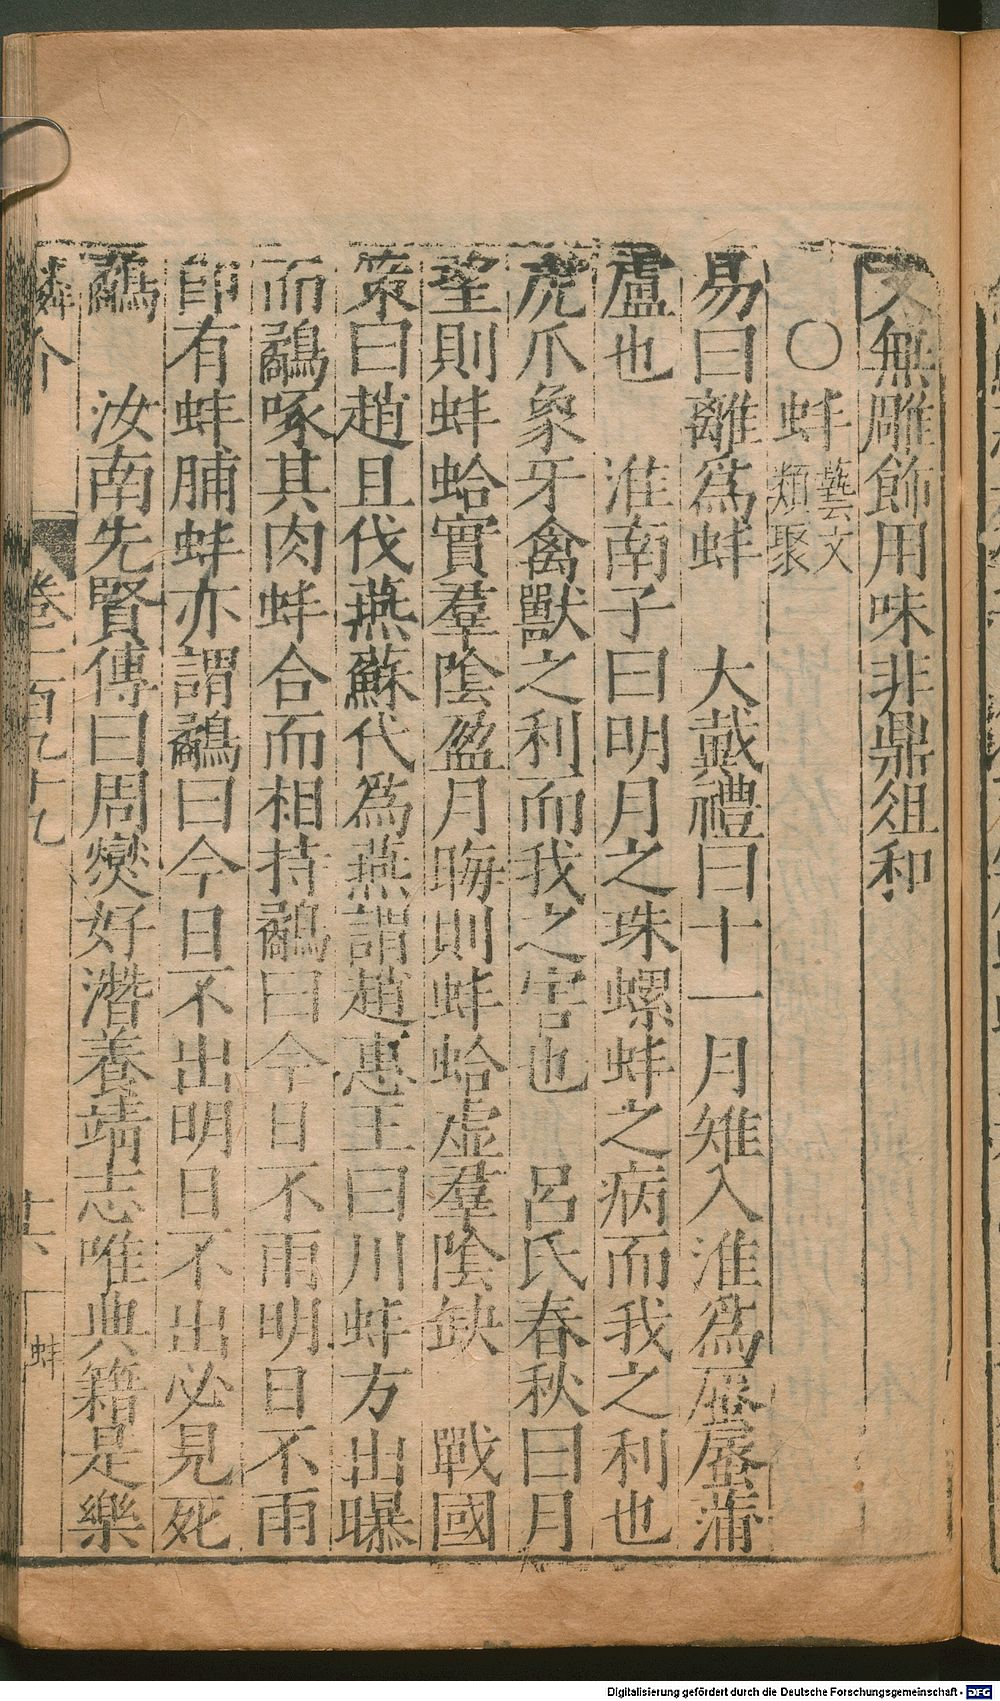 文無雕飾用味非鼎俎和
○蚌藝文類聚
易曰離爲蚌 大戴禮曰十一月雉入淮爲蜃蜃蒲
盧也 淮南子曰明月之珠螺蚌之病而我之利也
虎爪象牙禽獸之利而我之害也 呂氏春秋曰月
望則蚌蛤實羣陰盈月晦則蚌蛤虛羣陰缺 戰國
策曰趙且伐燕蘇代爲燕謂趙惠王曰川蚌方出曝
而鷸啄其肉蚌合而相持鷸曰今日不雨明日不雨
卽有蚌脯蚌亦謂鷸曰今日不出明日不出必見死
鷸 汝南先賢傳曰周燮好潛養靖志唯典籍是樂
鱗介 卷一百九十九 十六 蚌
Digitalisierung gefördert durch die Deutsche Forschungsgemeinschaft - DFG